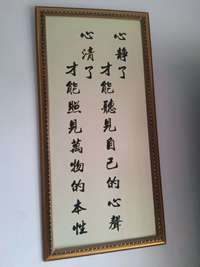 心靜了
才能聽見自己的心聲
心清了
才能照見萬物的本性